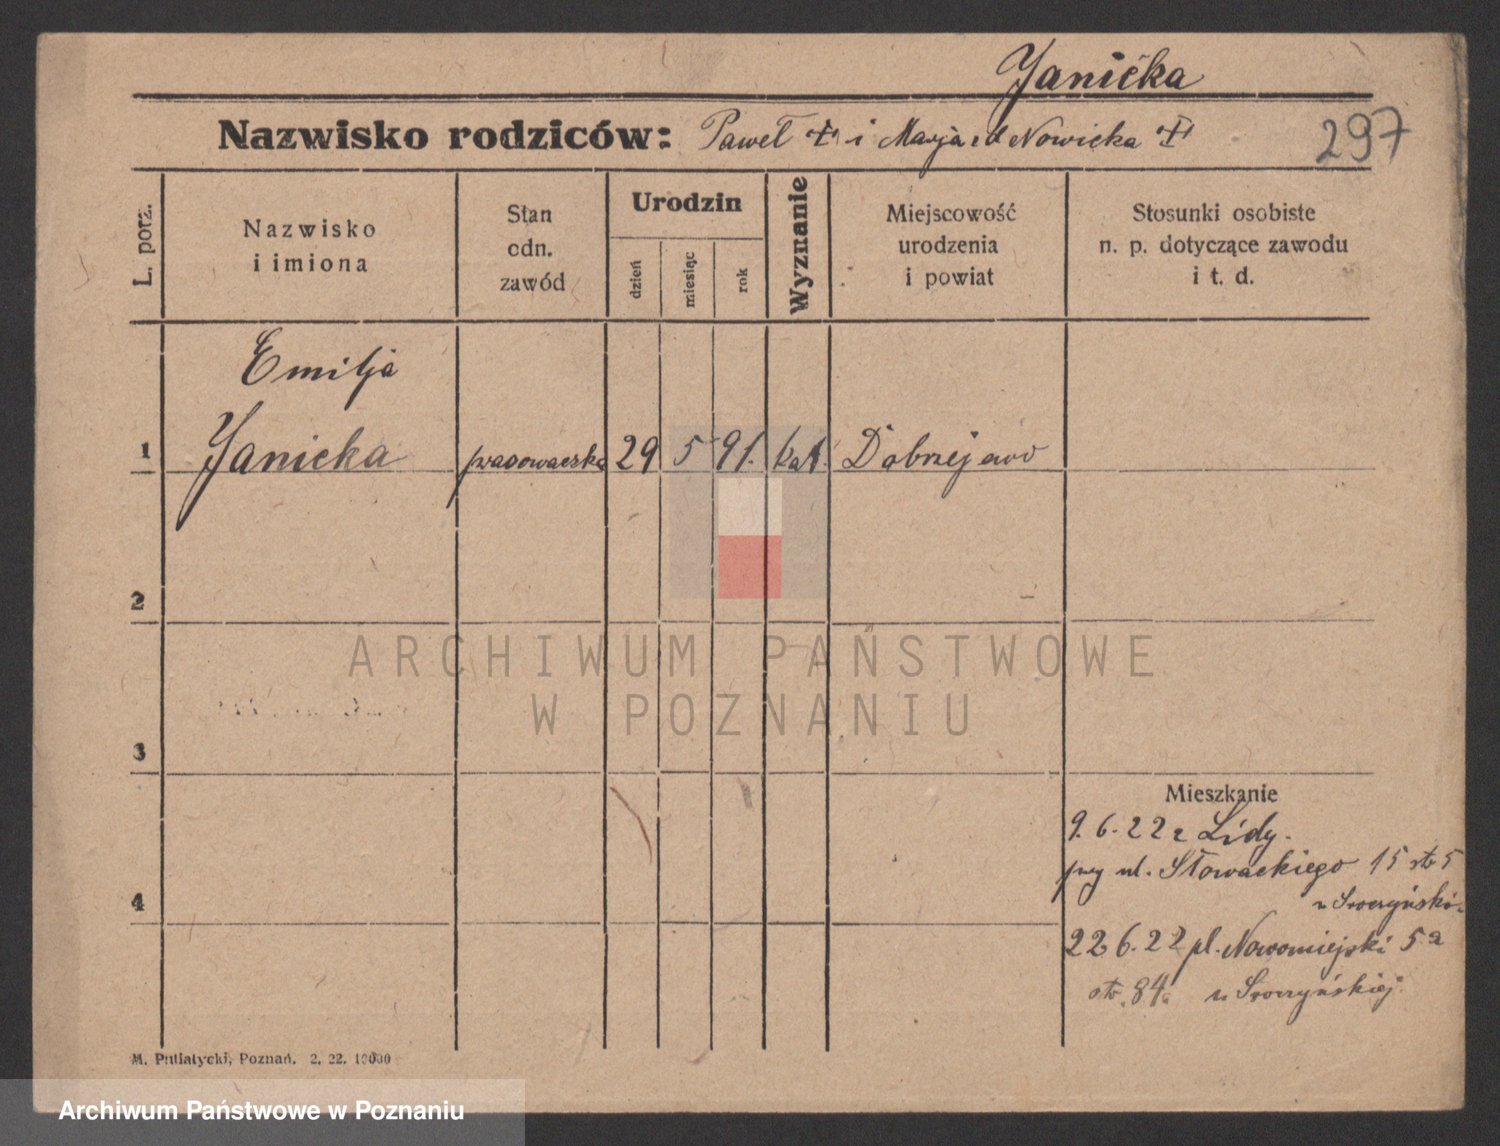 Janicka
Nazwisko rodziców: Paweł i Marja Nowicka
297
L. porz.
Nazwisko
i imiona
Stan
odn.
zawód
Urodzin
dzień
miesiąc
rok
Wyznanie
Miejscowość
urodzenia
i powiat
Stosunki osobiste
n. p. dotyczące zawodu
i t. d.
Emilja
1 Janicka 29 5 91. kat. Dobrzejewo
2
ARCHIWUM PAŃSTWOWE
W POZNANIU
3
Mieszkanie
9. 6. 22 z Lidy.
przy ul. Słowackiego 15 str 5
4
22 6. 22 pl. Nowomiejski 5a
str. 84.
M. Putiatycki, Poznań. 2. 22. 10000
Archiwum Państwowe w Poznaniu